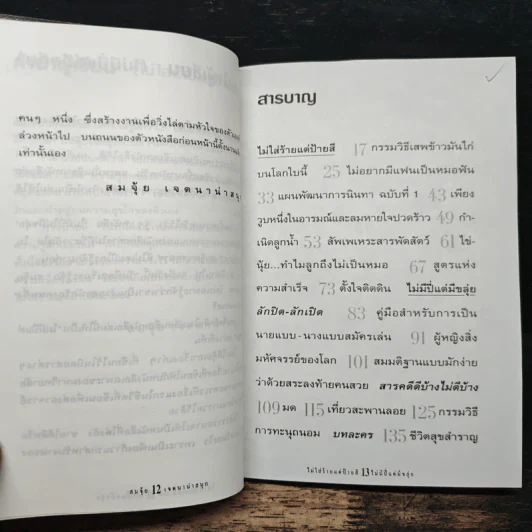 คนๆ หนึ่ง ซึ่งสร้างงานเพื่อวิ่งไล่ตามหัวใจของตัวเอง
ล่วงหน้าไป บนถนนของตัวหนังสือก่อนหน้านี้
เท่านั้นเอง
สมจุ้ย เจตนาน่าสนุก
สมจุ้ย 12 เจตนาน่าสนุก
สารบาญ
ไม่ใส่ร้ายแต่ป้ายสี 17 กรรมวิธีเสพข้าวมันไก่
บนโลกใบนี้ 25 ไม่อยากมีแฟนเป็นหมอฟัน
33 แผนพัฒนาการนินทา ฉบับที่ 1 43 เพียง
วูบหนึ่งในอารมณ์และลมหายใจปวดร้าว 49 กำ-
เนิดลูกน้ำ 53 สัพเพเหระสารพัดสัตว์ 61 ไข่-
นุ้ย...ทำไมลูกถึงไม่เป็นหมอ 67 สูตรแห่ง
ความสำเร็จ 73 ตั้งใจติดดิน ไม่มีปี่แต่มีขลุ่ย
ลักปิด-ลักเปิด 83 คู่มือสำหรับการเป็น
นายแบบ-นางแบบสมัครเล่น 91 ผู้หญิงสิ่ง
มหัศจรรย์ของโลก 101 สมมติฐานแบบมักง่าย
ว่าด้วยสระลงท้ายคนสวย สารคดีดีบ้างไม่ดีบ้าง
109 มด 115 เที่ยวสะพานลอย 125 กรรมวิธี
การทะนุถนอม บทละคร 135 ชีวิตสุขสำราญ
ไม่ใส่ร้ายแต่ป้ายสี 13 ไม่มีปี่แต่มีขลุ่ย